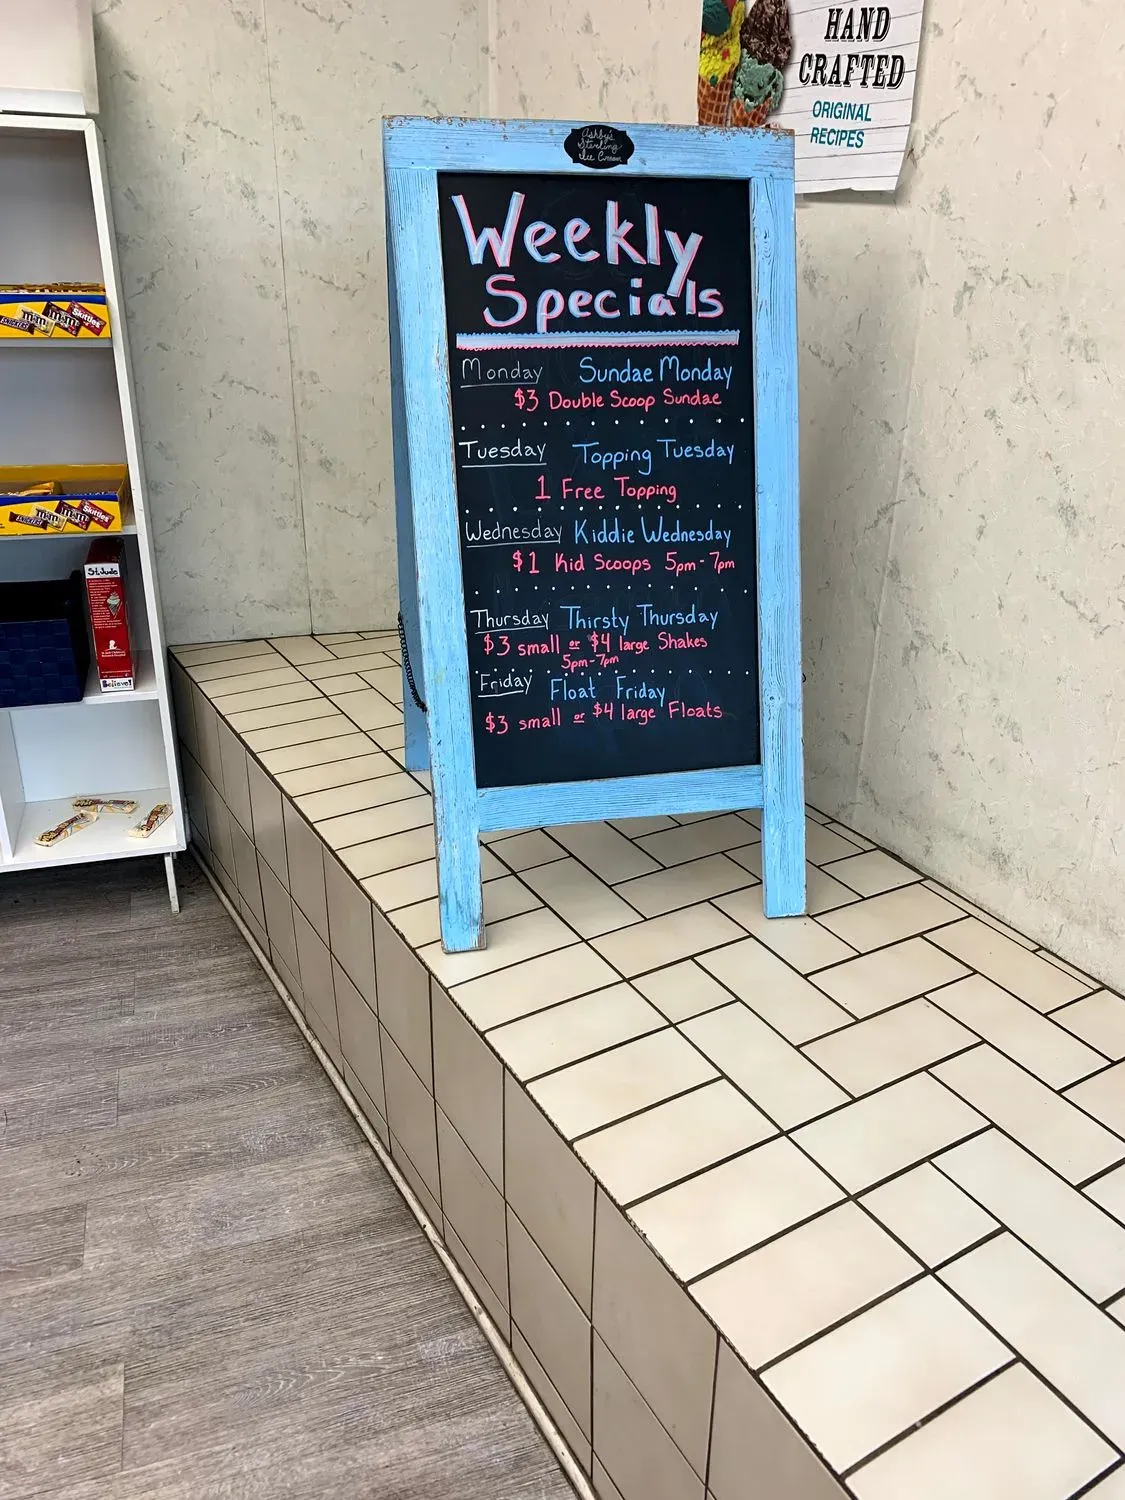 HAND
CRAFTED
ORIGINAL
RECIPES
Ashby's
Sterling
Ice Cream
Weekly
Specials
Monday Sundae Monday
$3 Double Scoop Sundae
Tuesday Topping Tuesday
1 Free Topping
Wednesday Kiddie Wednesday
$1 Kid Scoops 5pm-7pm
Thursday Thirsty Thursday
$3 small or $4 large Shakes
5pm-7pm
Friday Float Friday
$3 small or $4 large Floats
m&m
m&m
Skittles
SNICKERS
m&m
m&m
Skittles
St. Jude
Believe!